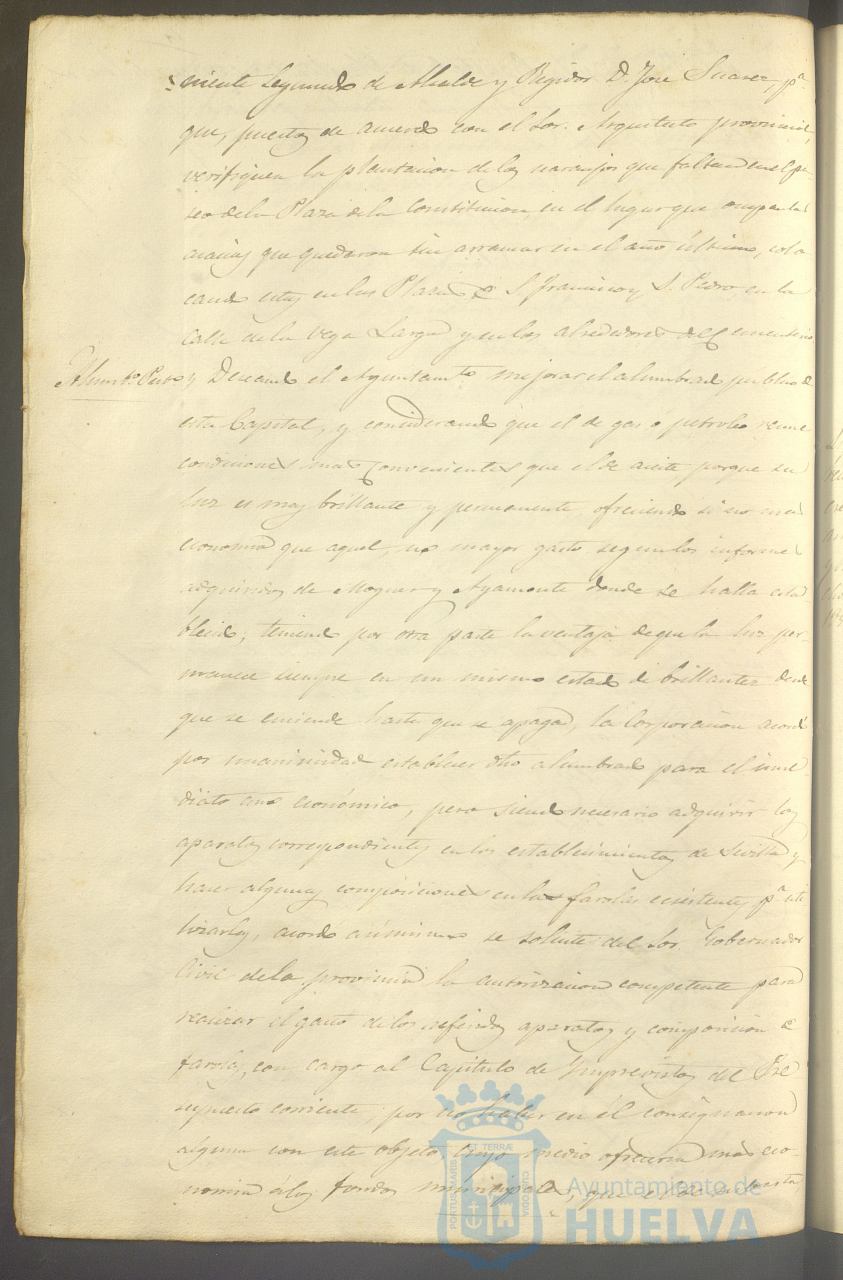 niente segundo de Alcalde y Regidor D. José Suarez, pª
que, puestos de acuerdo con el Sor. Arquitecto provincial,
verifiquen la plantacion de los naranjos que faltan en el pa-
seo de la Plaza de la Constitucion, en el lugar que ocupan las
acacias que quedaron sin arrancar en el año último, colo
cando estas en las Plazas de S. Francisco y S. Pedro, en la
Calle de la Vega Larga y en los alrededores del Cementerio.
Alumbdo. Puco. y Deseando el Ayuntamto. mejorar el alumbrado público de
esta Capital, y considerando que el de gas ó petroleo reune
condiciones mas convenientes que el de aceite porque su
luz es muy brillante y permanente, ofreciendo si no mas
economia que aquel, no mayor gasto segun los informes
adquiridos de Moguer y Ayamonte donde se halla esta-
blecido, teniendo por otra parte la ventaja de que la luz per-
manece siempre en un mismo estado de brillantez desde
que se enciende hasta que se apaga, la Corporacion acordó
por unanimidad establecer dho alumbrado para el inme
diato año económico, pero siendo necesario adquirir los
aparatos correspondientes en los establecimientos de Sevilla y
hacer algunas composiciones en las farolas ecsistentes pª uti
lizarlas, acordó asimismo se solicite del Sor Gobernador
Civil de la provincia la autorizacion competente para
realizar el gasto de los referidos aparatos y composicion de
farolas, con cargo al Capítulo de Imprevistos del Pre
supuesto corriente, por no haber en él consignacion
alguna con este objeto, cuyo medio ofreceria mas eco-
nomia á los fondos municipales, que el de subasta
PORTUS MARIS
ET TERRÆ
CUSTODIA
Ayuntamiento de
HUELVA